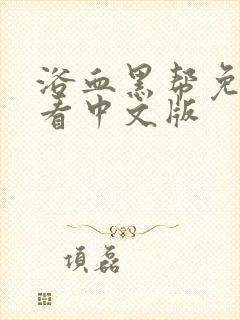 浴血黑帮免
看中文版
项磊